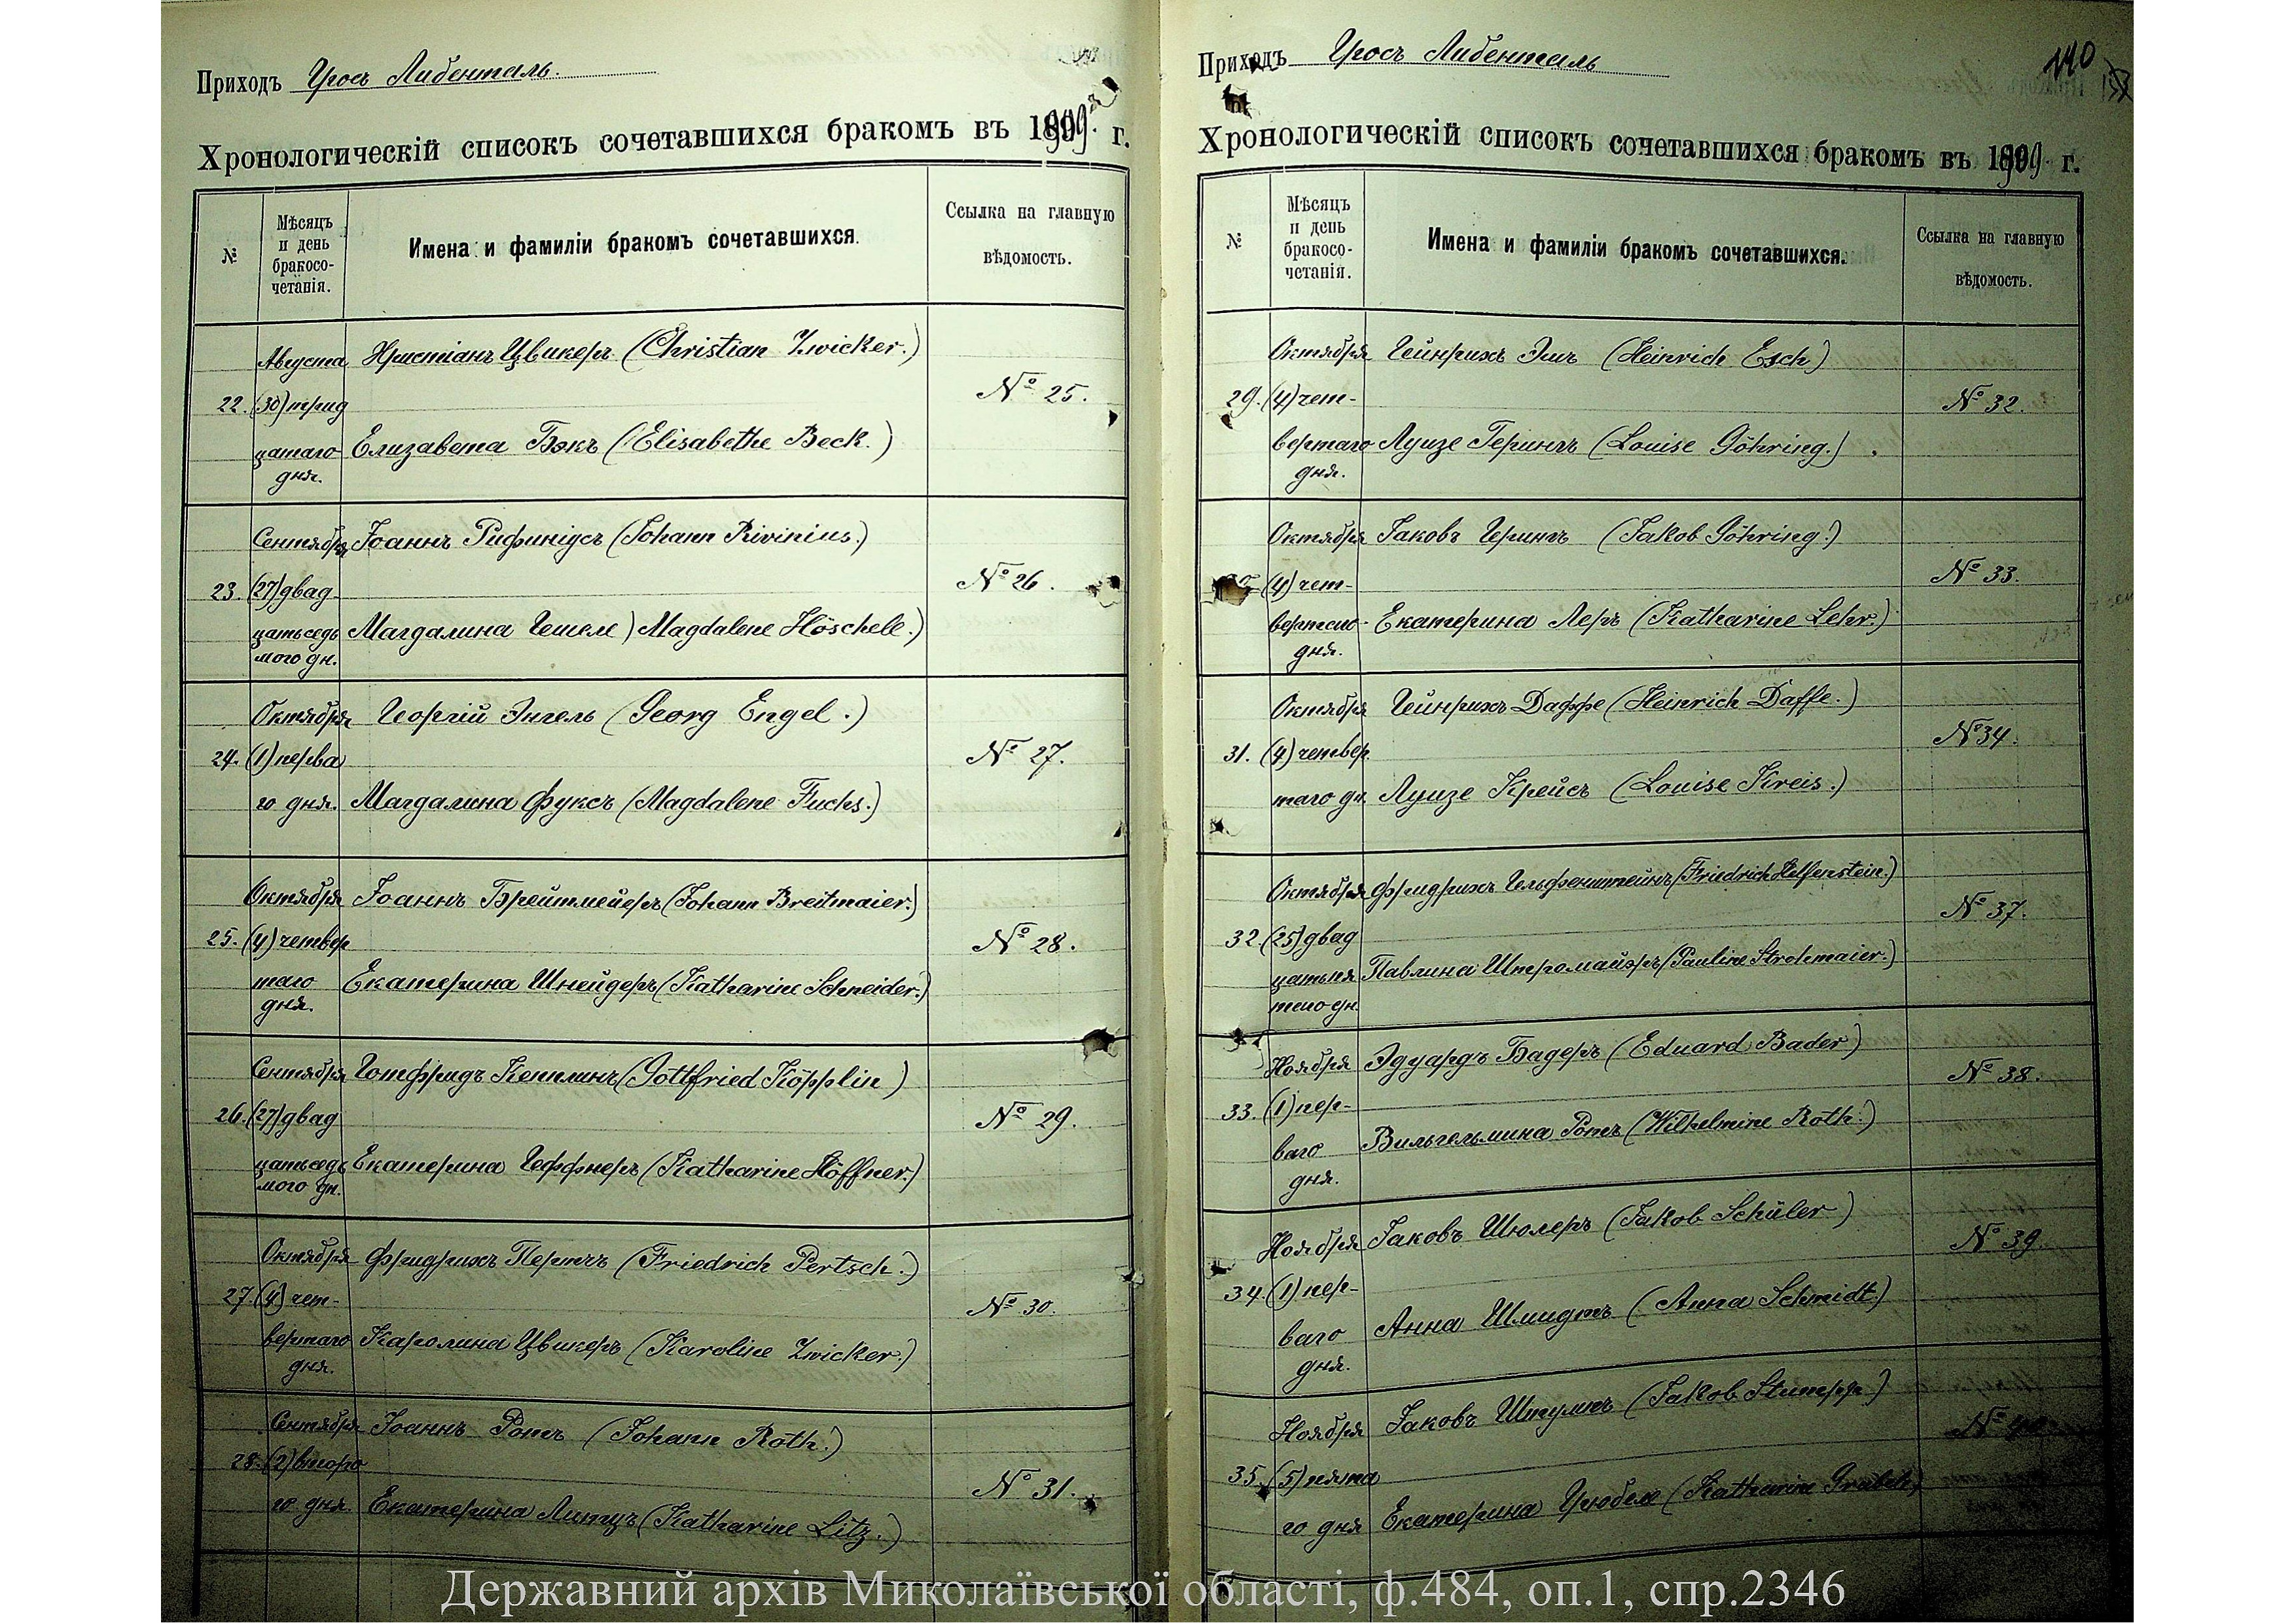 Приходъ Гросъ Либенталь.
Хронологическій списокъ сочетавшихся бракомъ въ 1909 г.
№
Мѣсяцъ
и день
бракосо-
четанія.
Имена и фамиліи бракомъ сочетавшихся.
Ссылка на главную
вѣдомость.
Августа Христіанъ Цвикеръ (Christian Zwicker.)
22. (30) трид
№ 25.
цатаго Елизавета Бэкъ (Elisabethe Beck.)
дня.
Сентября Іоаннъ Рифиніусъ (Johann Rivinius.)
23. (27) двад
№ 26.
цатьседь Магдалина Гешеле) Magdalene Höschele.)
мого дн.
Октября Георгій Энгель (Georg Engel.)
24. (1) перва
№ 27.
го дня. Магдалина Фуксъ (Magdalene Fuchs.)
Октября Іоаннъ Брейтмейеръ (Johann Breitmaier.)
25. (4) четвер
№ 28.
таго Екатерина Шнейдеръ (Katharine Schneider.)
дня.
Сентября Готфридъ Кепплинъ (Gottfried Köpplin)
26. (27) двад
№ 29.
цатьседь Екатерина Геффнеръ (Katharine Höffner.)
мого дн.
Октября Фридрихъ Пертчъ (Friedrich Pertsch.)
27. (4) чет-
№ 30.
вертаго Каролина Цвикеръ (Karoline Zwicker.)
дня.
Сентября Іоаннъ Ротъ (Johann Roth.)
28. (2) второ
№ 31.
го дня. Екатерина Литцъ (Katharine Litz.)
Приходъ Гросъ Либенталь
140
Хронологическій списокъ сочетавшихся бракомъ въ 1909 г.
№
Мѣсяцъ
и день
бракосо-
четанія.
Имена и фамиліи бракомъ сочетавшихся.
Ссылка на главную
вѣдомость.
Октября Гейнрихъ Эшъ (Heinrich Esch)
29. (4) чет-
№ 32.
вертаго Луизе Герингъ (Louise Göhring.)
дня.
Октября Іаковъ Герингъ (Jakob Göhring.)
(4) чет-
№ 33.
Екатерина Леръ (Katharine Lehr.)
дня.
Октября Гейнрихъ Даффе (Heinrich Daffe.)
31. (4) четвер
№ 34.
таго дн. Луизе Крейсъ (Louise Kreis.)
Октября Фридрихъ Гельфенштейнъ (Friedrich Helfenstein.)
32. (25) двад
№ 37.
цатьпя Павлина Штромайэръ (Pauline Strohmaier.)
таго дн.
Ноября Эдуардъ Бадеръ (Eduard Bader)
33. (1) пер-
№ 38.
ваго Вильгельмина Ротъ (Wilhelmine Roth.)
дня.
Ноября Іаковъ Шюлеръ (Jakob Schüler.)
34. (1) пер-
№ 39.
ваго Анна Шмидтъ (Anna Schmidt)
дня.
Ноября Іаковъ Штумпъ (Jakob Stumpp.)
35. (5) пята
№ 40.
го дня Екатерина
Державний архів Миколаївської області, ф.484, оп.1, спр.2346